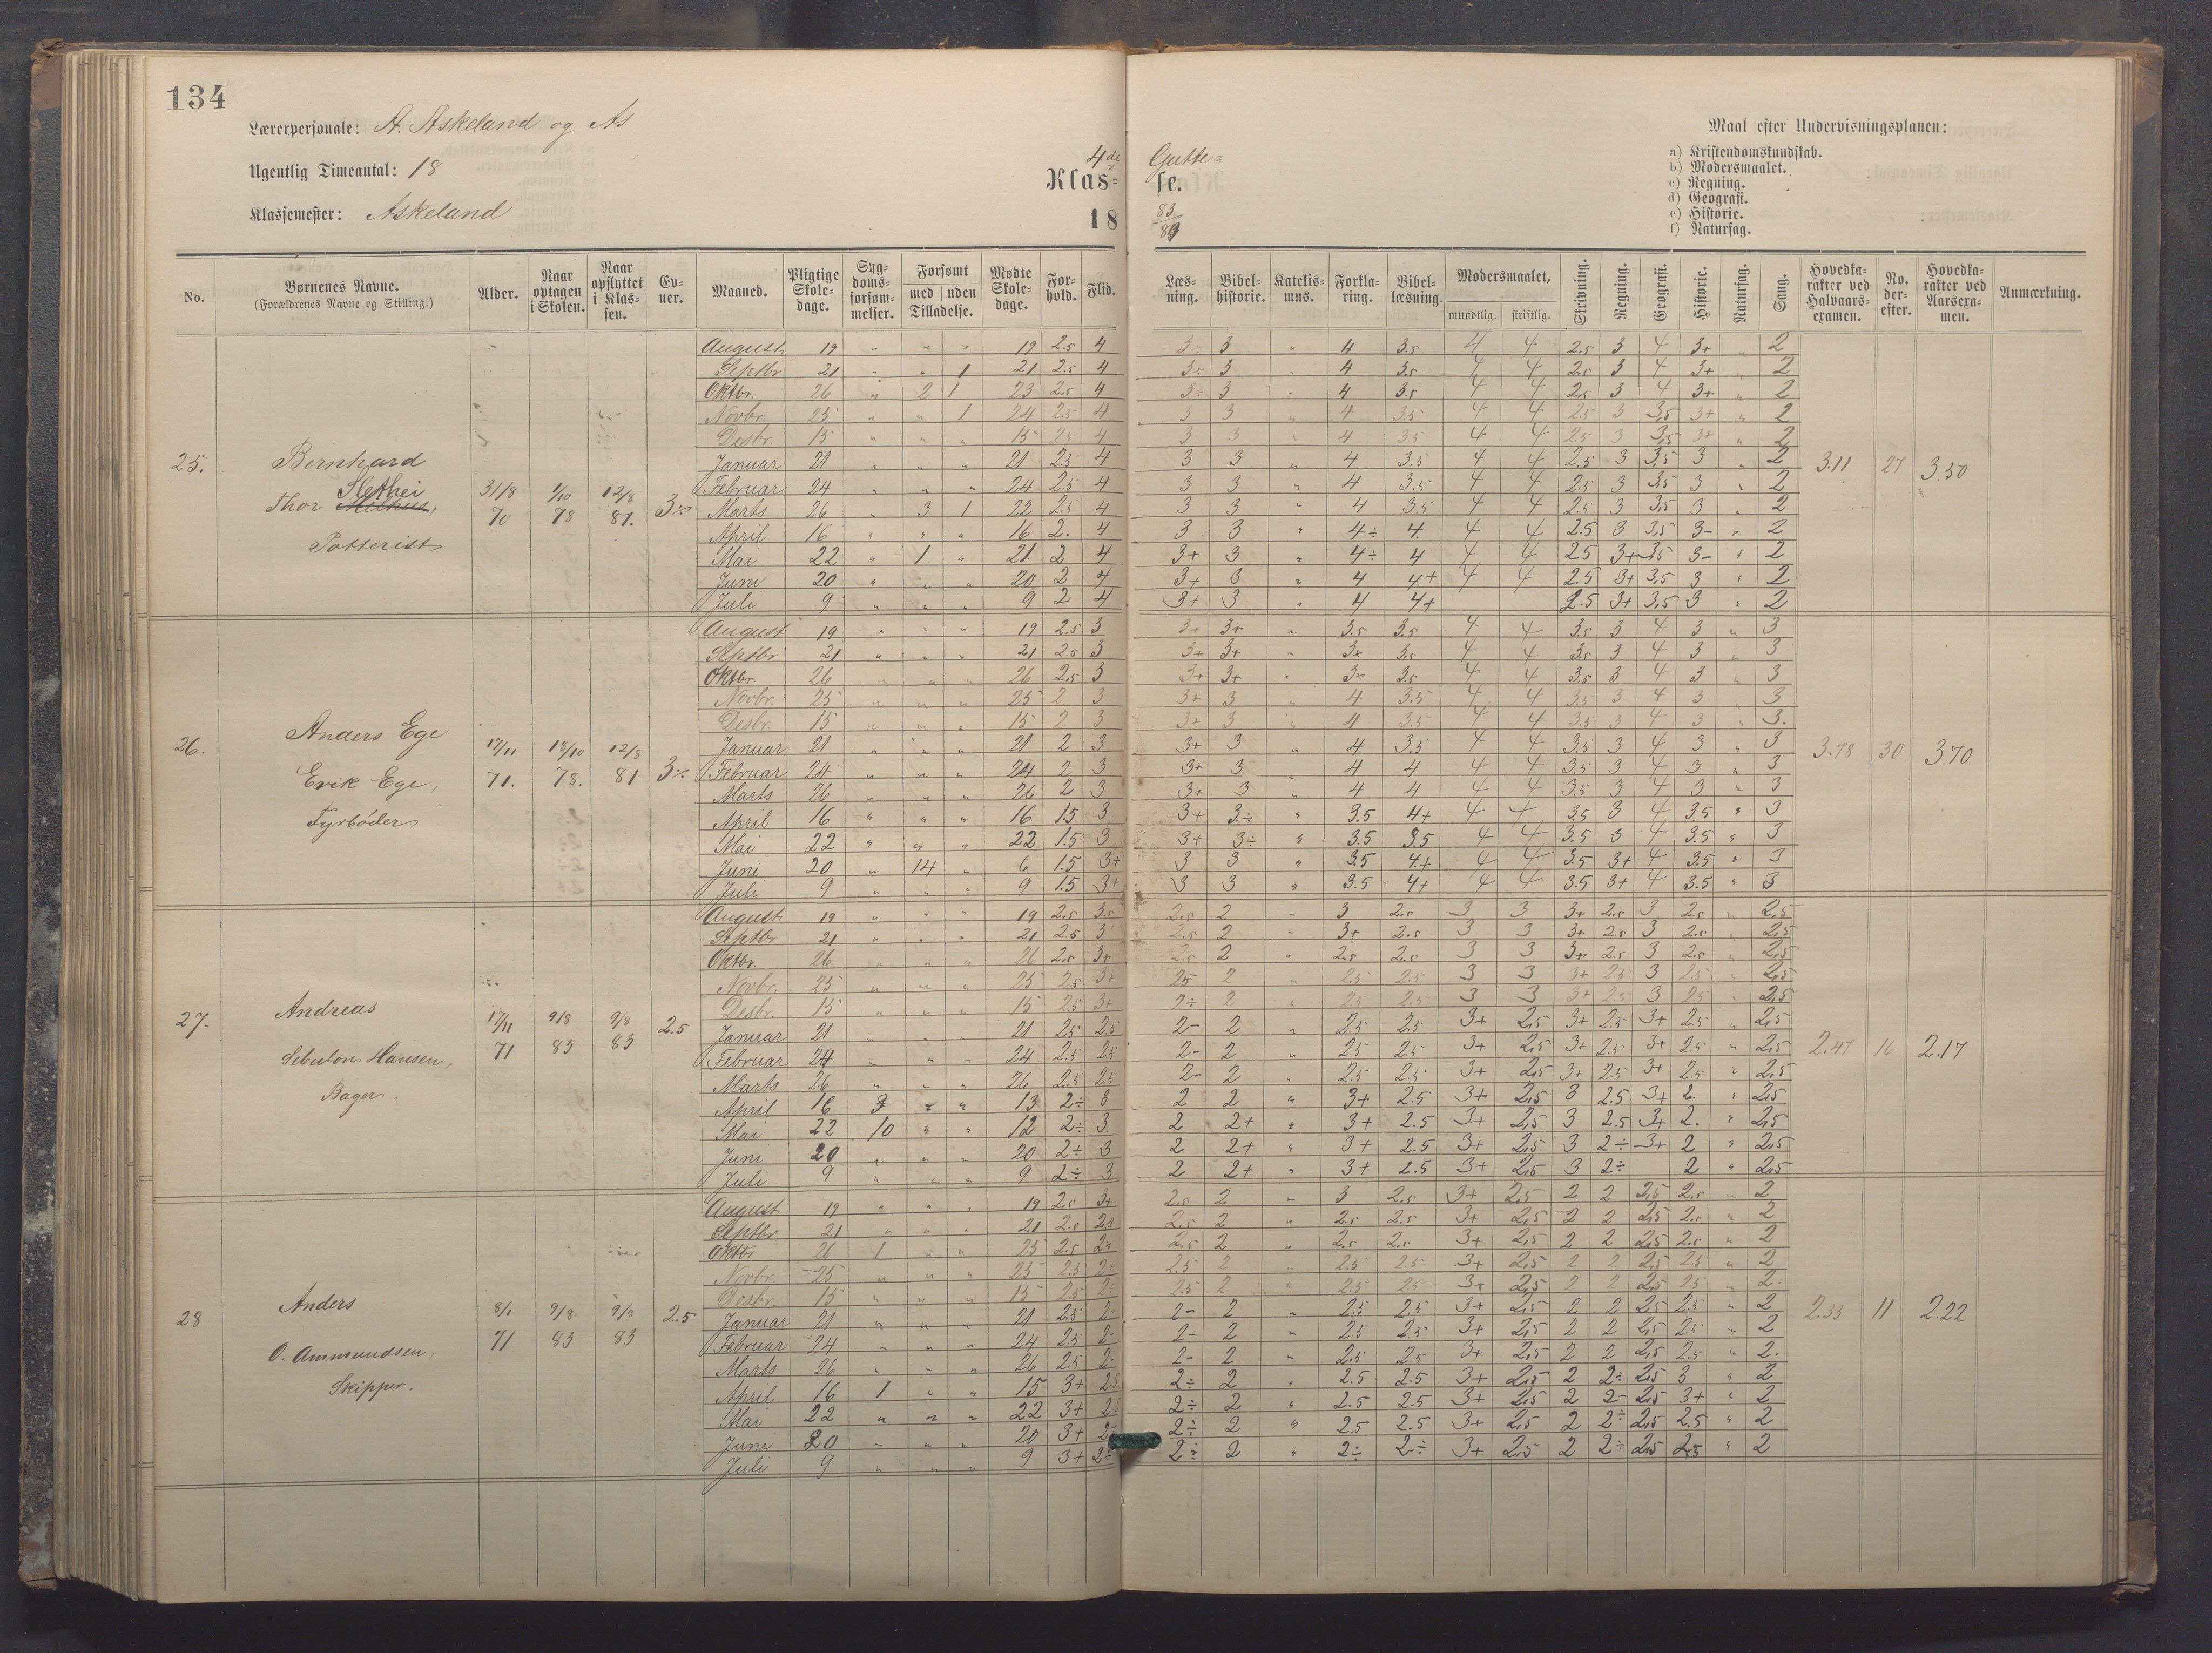 134
Lærerpersonale: A. Askeland og As
Ugentlig Timeantal: 18
Klassemester: Askeland
4de Gutte=
Klas= se.
18 83/84
Maal efter Undervisningsplanen:
a) Kristendomskundskab.
b) Modersmaalet.
c) Regning.
d) Geografi.
e) Historie.
f) Naturfag.
No. Børnenes Navne. (Forældrenes Navne og Stilling.) Alder. Naar optagen i Skolen. Naar opflyttet i Klassen. Evner. Maaned. Pligtige Skoledage. Sygdomsforsømmelser. Forsømt med uden Tilladelse. Mødte Skoledage. Forhold. Flid. Læsning. Bibelhistorie. Katekismus. Forklaring. Bibellæsning. Modersmaalet, mundtlig. skriftlig. Skrivning. Regning. Geografi. Historie. Naturfag. Sang. Hovedkarakter ved Halvaarsexamen. No. derefter. Hovedkarakter ved Aarsexamen. Anmærkning.
25. Bernhard Slethei
Thor Melhus,
Potterist
31/8 70 1/10 78 12/8 81. 3÷
August 19 " " " 19 2.5 4 3÷ 3 " 4 3.5 4 4 2.5 3 4 3+ " 2
Septbr 21 " " 1 21 2.5 4 3÷ 3 " 4 3.5 4 4 2.5 3 4 3+ " 2
Oktbr. 26 " 2 1 23 2.5 4 3÷ 3 " 4 3.5 4 4 2.5 3 4 3+ " 2
Novbr. 25 " " 1 24 2.5 4 3 3 " 4 3.5 4 4 2.5 3 3,5 3+ " 2
Desbr. 15 " " " 15 2.5 4 3 3 " 4 3.5 4 4 2.5 3 3,5 3+ " 2
Januar 21 " " " 21 2.5 4 3 3 " 4 3.5 4 4 2.5 3 3,5 3 " 2
Februar 24 " " " 24 2.5 4 3 3 " 4 3.5 4 4 2.5 3 3,5 3 " 2
Marts 26 " 3 1 22 2.5 4 3 3 " 4 3.5 4 4 2.5 3 3,5 3 " 2
April 16 " " " 16 2. 4 3 3 " 4÷ 4. 4 4 2.5 3 3,5 3- " 2
Mai 22 " 1 " 21 2 4 3+ 3 " 4÷ 4 4 4 2.5 3+ 3,5 3- " 2
Juni 20 " " " 20 2 4 3+ 3 " 4 4+ 4 4 2.5 3+ 3,5 3 " 2
Juli 9 " " " 9 2 4 3+ 3 " 4 4+ 2.5 3+ 3,5 3 " 2
3.11 27 3.50
26. Anders Ege
Erik Ege,
Fyrbøder
17/11 71. 18/10 78. 12/8 81 3÷
August 19 " " " 19 2.5 3 3+ 3+ " 3.5 3.5 4 4 3.5 3 4 3 " 3
Septbr 21 " " " 21 2.5 3 3+ 3+ " 3÷ 3.5 4 4 3.5 3 4 3 " 3
Oktbr. 26 " " " 26 2.5 3 3+ 3+ " 3÷ 3.5 4 4 3.5 3 4 3 " 3
Novbr. 25 " " " 25 2 3 3+ 3 " 4 3.5 4 4 3.5 3 4 3 " 3
Desbr. 15 " " " 15 2 3 3+ 3 " 4 3.5 4 4 3.5 3 4 3 " 3.
Januar 21 " " " 21 2 3 3+ 3 " 4 3.5 4 4 3.5 3 4 3 " 3
Februar 24 " " " 24 2 3 3+ 3 " 4 4 4 4 3.5 3 4 3 " 3
Marts 26 " " " 26 2 3 3+ 3 " 4 4 4 4 3.5 3 4 3 " 3
April 16 " " " 16 1.5 3 3+ 3÷ " 3.5 4+ 4 4 3.5 3 4 3.5 " 3
Mai 22 " " " 22 1.5 3 3+ 3÷ " 3.5 3.5 4 4 3.5 3 4 3.5 " 3
Juni 20 " 14 " 6 1.5 3+ 3 3 " 3.5 4+ 4 4 3.5 3+ 4 3.5 " 3
Juli 9 " " " 9 1.5 3+ 3 3 " 3.5 4+ 4 4 3.5 3+ 4 3.5 " 3
3.78 30 3.70
27. Andreas
Sebulon Hansen,
Bager.
17/11 71 9/8 83 9/8 83 2.5
August 19 " " " 19 2.5 3.5 2.5 2 " 3 2.5 3 3 3+ 2.5 3 2.5 " 2,5
Septbr 21 " " " 21 2.5 3 2.5 2 " 3+ 2.5 3 3 3+ 2.5 3 2.5 " 2,5
Oktbr. 26 " " " 26 2.5 3+ 2.5 2 " 2.5 2.5 3 3 3+ 2.5 3 2.5 " 2,5
Novbr. 25 " " " 25 2.5 3+ 2.5 2 " 2.5 2.5 3 3 3+ 2.5 3 2.5 " 2,5
Desbr. 15 " " " 15 2.5 3+ 2÷ 2 " 2.5 2.5 3 3 3+ 2.5 3 2.5 " 2,5
Januar 21 " " " 21 2.5 2.5 2- 2 " 2.5 2.5 3+ 2,5 3+ 2.5 3+ 2.5 " 2,5
Februar 24 " " " 24 2.5 2.5 2- 2 " 2.5 2.5 3+ 2,5 3+ 2.5 3+ 2.5 " 2,5
Marts 26 " " " 26 2.5 2.5 2- 2 " 2.5 2.5 3+ 2,5 3+ 2.5 3+ 2.5 " 2,5
April 16 3 " " 13 2÷ 3 2 2 " 3+ 2.5 3+ 2,5 3 2.5 3+ 2. " 2,5
Mai 22 10 " " 12 2÷ 3. 2 2+ " 3+ 2.5 3+ 2,5 3 2.5 3+ 2. " 2,5
Juni 20 " " " 20 2÷ 3 2 2+ " 3+ 2.5 3+ 2,5 3 2÷ 3+ 2 " 2,5
Juli 9 " " " 9 2÷ 3 2 2+ " 3+ 2.5 3+ 2,5 3 2÷ 2 " 2,5
2.47 16 2.17
28 Anders
O. Ammundsen,
Skipper.
8/1 71 9/8 83 9/8 83 2.5
August 19 " " " 19 2.5 3+ 2.5 2 " 3 2.5 3+ 2,5 2 2 2,5 2.5 " 2
Septbr 21 " " " 21 2.5 2.5 2.5 2 " 2.5 2.5 3+ 2,5 2 2 2,5 2.5 " 2
Oktbr 26 1 " " 25 2.5 2÷ 2.5 2 " 2.5 2.5 3+ 2,5 2 2 2,5 2.5 " 2
Novbr. 25 " " " 25 2.5 2÷ 2.5 2 " 2.5 2.5 3+ 2,5 2 2 2,5 2.5 " 2
Desbr. 15 " " " 15 2.5 2- 2.5 2 " 2.5 2.5 3+ 2,5 2 2 2,5 2.5 " 2.
Januar 21 " " " 21 2.5 2- 2- 2 " 2.5 2.5 3+ 2,5 2 2 2,5 2.5 " 2
Februar 24 " " " 24 2.5 2- 2- 2 " 2.5 2.5 3+ 2,5 2 2 2,5 2.5 " 2
Marts 26 " " " 26 2.5 2- 2- 2 " 2.5 2.5 3+ 2,5 2 2 2,5 2.5 " 2.
April 16 1 " " 15 3+ 2.5 2÷ 2 " 2.5 2.5 3+ 2,5 2 2÷ 2,5 3 " 2
Mai 22 " " " 22 3+ 2.5 2÷ 2 " 2.5 2.5 3+ 2,5 2 2- 2,5 3+ " 2
Juni 20 " " " 20 3+ 2- 2÷ 2 " 2.5 2.5 3+ 2,5 2 2÷ 2,5 2.5 " 2
Juli 9 " " " 9 3+ 2÷ 2÷ 2 " 2÷ 2÷ 3+ 2,5 2 2÷ 2,5 2,5 " 2
2.33 11 2.22